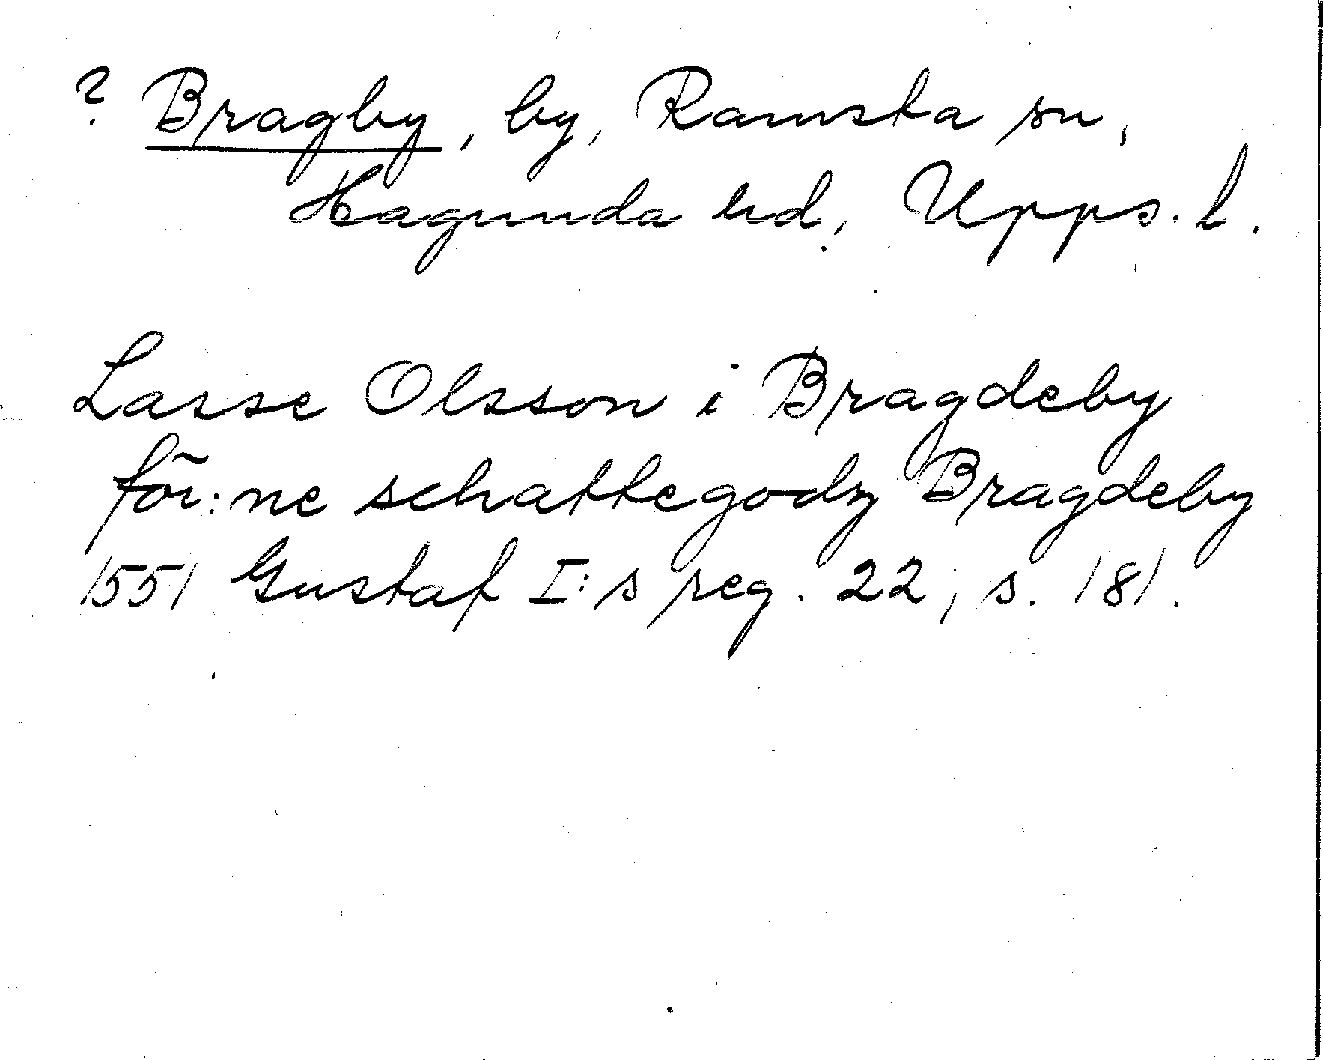 ? Bragby, by, Ramsta sn,
Hagunda hd, Upps. l.
Lasse Olsson i Bragdeby
för:ne schattegodz Bragdeby
1551 Gustaf I:s reg. 22, s. 181.